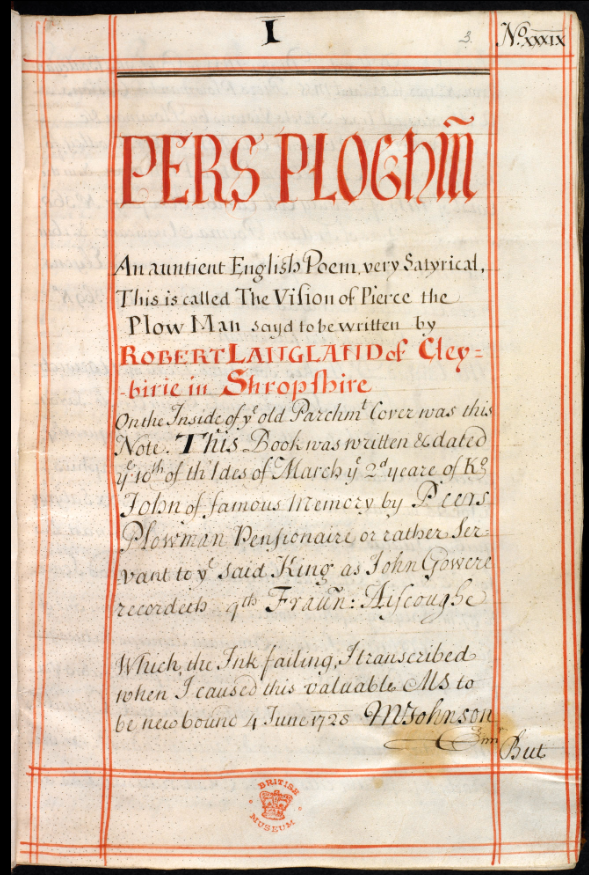 I
3.
No. XXXIX
PERS PLOGHM̃
An auntient English Poem, very Satyrical,
This is called The Vision of Pierce the
Plow Man sayd to be written by
ROBERT LANGLAND of Cley=
=birie in Shropshire
On the Inside of yᵉ old Parchmᵗ Cover was this
Note. This Book was written & dated
yᵉ 10ᵗʰ of th' Ides of March yᵉ 2ᵈ yeare of Kg
John of famous memory by Peers
Plowman Pensionaire or rather Ser
vant to yᵉ said King as John Gowere
recordeth qᵗʰ Fraũn: Aiscoughe
Which, the Ink failing, I transcribed
when I caused this valuable MS to
be new bound 4 June 1728 MJohnson
But
BRITISH
MUSEUM